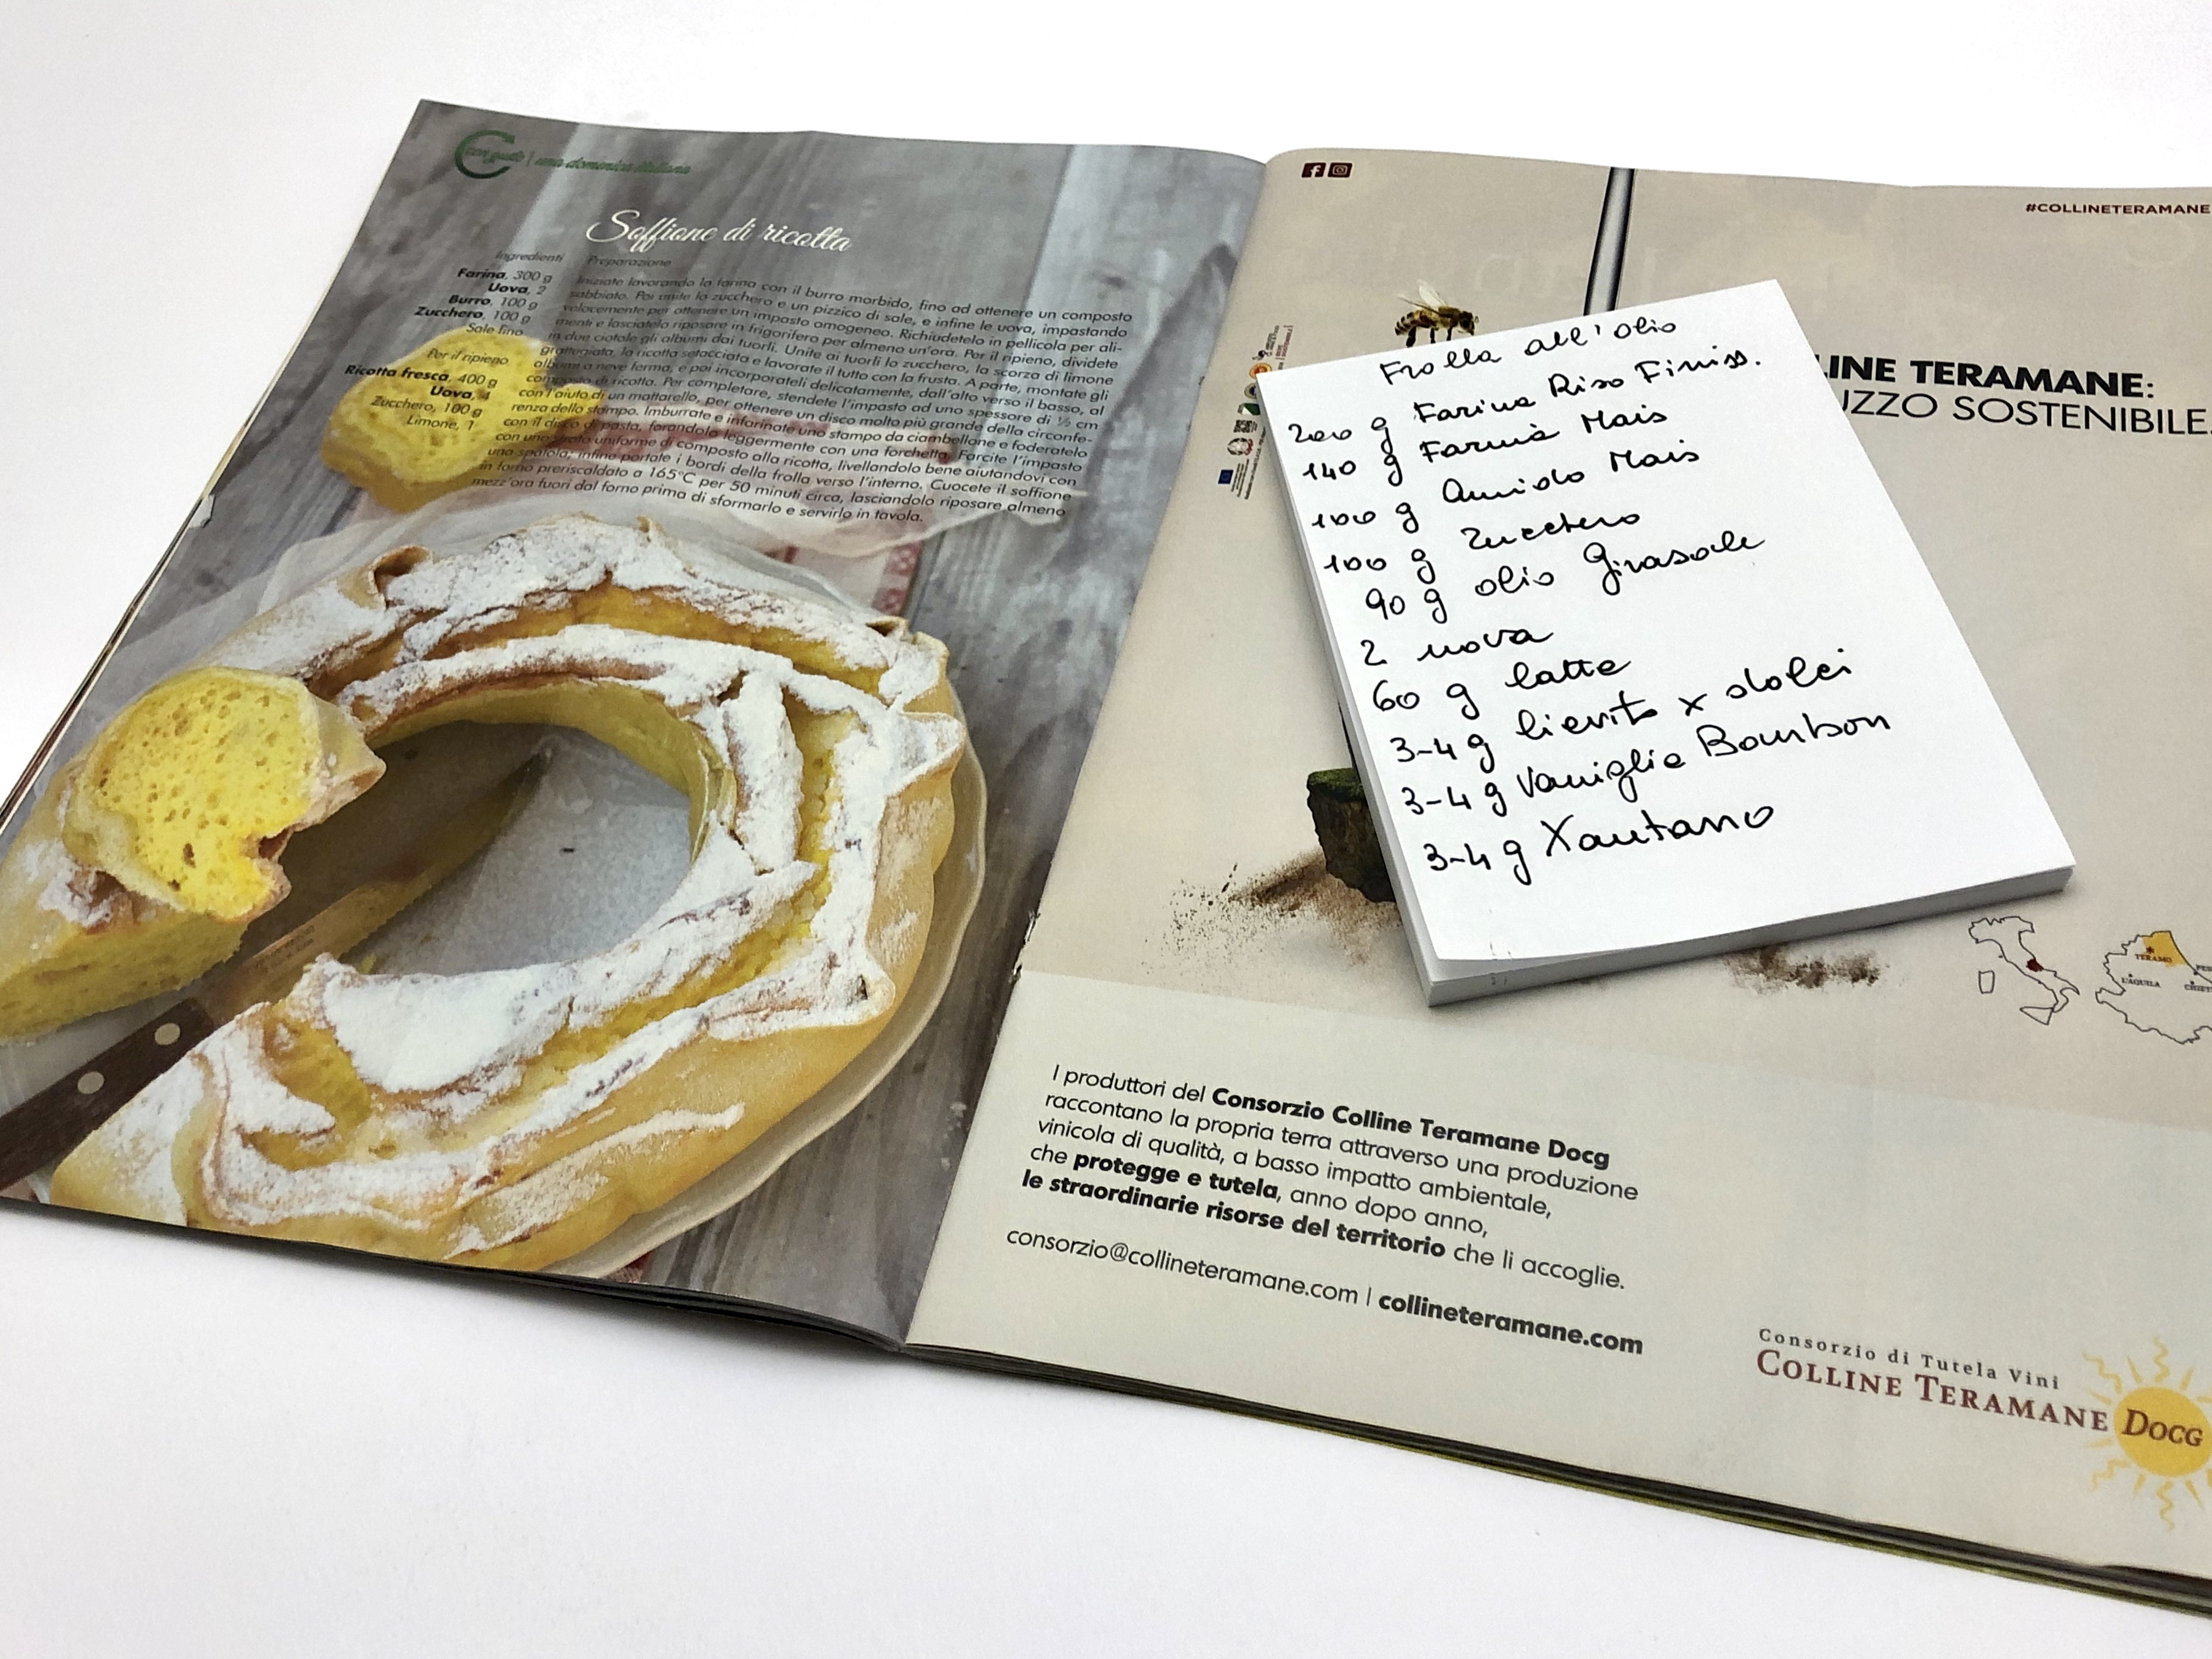 con gusto | una domenica italiana
Soffione di ricotta
Ingredienti
Farina, 300 g
Uova, 2
Burro, 100 g
Zucchero, 100 g
Sale fino
Per il ripieno
Ricotta fresca, 400 g
Uova, 4
Zucchero, 100 g
Limone, 1
Preparazione
Iniziate lavorando la farina con il burro morbido, fino ad ottenere un composto
sabbiato. Poi unite lo zucchero e un pizzico di sale, e infine le uova, impastando
velocemente per ottenere un impasto omogeneo. Richiudetelo in pellicola per ali-
menti e lasciatelo riposare in frigorifero per almeno un'ora. Per il ripieno, dividete
in due ciotole gli albumi dai tuorli. Unite ai tuorli lo zucchero, la scorza di limone
grattugiata, la ricotta setacciata e lavorate il tutto con la frusta. A parte, montate gli
albumi a neve ferma, e poi incorporateli delicatamente, dall'alto verso il basso, al
composto di ricotta. Per completare, stendete l'impasto ad uno spessore di ½ cm
con l'aiuto di un mattarello, per ottenere un disco molto più grande della circonfe-
renza dello stampo. Imburrate e infarinate uno stampo da ciambellone e foderatelo
con il disco di pasta, forandolo leggermente con una forchetta. Farcite l'impasto
con uno strato uniforme di composto alla ricotta, livellandolo bene aiutandovi con
una spatola; infine portate i bordi della frolla verso l'interno. Cuocete il soffione
in forno preriscaldato a 165°C per 50 minuti circa, lasciandolo riposare almeno
mezz'ora fuori dal forno prima di sformarlo e servirlo in tavola.
#COLLINETERAMANE
LINE TERAMANE:
UZZO SOSTENIBILE.
Frolla all'olio
200 g Farina Riso Finiss.
140 g Farina Mais
100 g Amido Mais
100 g Zucchero
90 g olio Girasole
2 uova
60 g latte
3-4 g lievito x dolci
3-4 g Vaniglia Bourbon
3-4 g Xantano
TERAMO
L'AQUILA
I produttori del Consorzio Colline Teramane Docg
raccontano la propria terra attraverso una produzione
vinicola di qualità, a basso impatto ambientale,
che protegge e tutela, anno dopo anno,
le straordinarie risorse del territorio che li accoglie.
consorzio@collineteramane.com | collineteramane.com
Consorzio di Tutela Vini
COLLINE TERAMANE DOCG